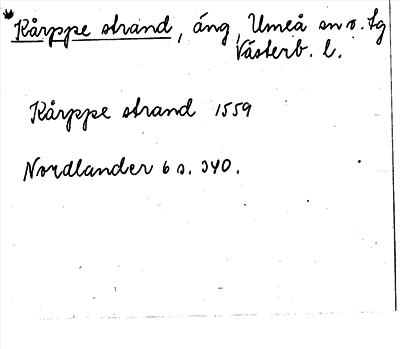 Kårppe strand, äng, Umeå sn o. tg
Västerb. l.
Kårppe strand 1559
Nordlander 6 s. 340.